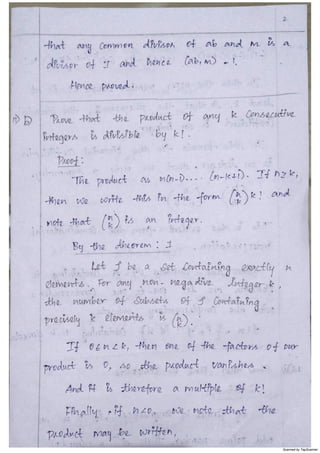 2
that any common divisor of ab and m is a
divisor of 1 and hence (ab, m) = 1.
Hence proved.
1) b) Prove that the product of any k consecutive
integers is divisible by k!.
Proof:
The product as n(n-1).... (n-k+1). If n≥k,
then we write this in the form (n k) k! and
note that (n k) is an integer.
By the theorem: 1
Let S be a set containing exactly n
elements. For any non-negative Integer k,
the number of subsets of S containing
precisely k elements is (n k).
If 0≤n<k, then one of the factors of our
product is 0, so the product vanishes.
And it is therefore a multiple of k!
Finally, if n<0, we note that the
product may be written,
Scanned by TapScanner